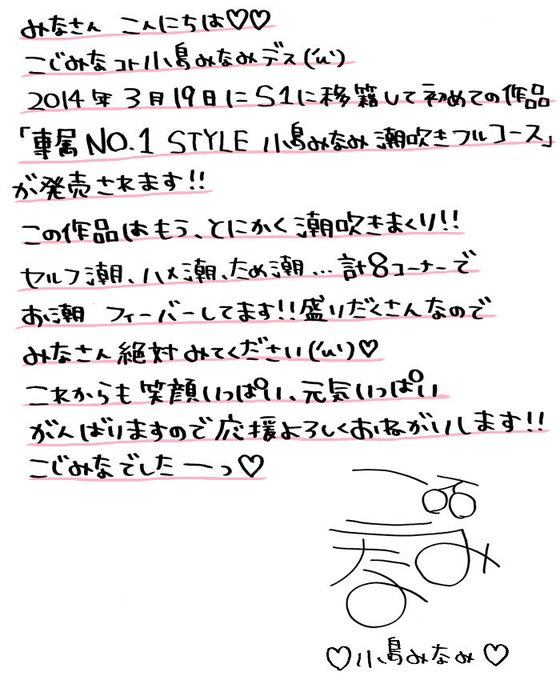 みなさん こんにちは♡♡
こじみなコト小島みなみデス('ω')
2014年3月19日にS1に移籍して初めての作品
「専属NO.1 STYLE 小島みなみ 潮吹きフルコース」
が発売されます!!
この作品はもう、とにかく潮吹きまくり!!
セルフ潮、ハメ潮、ため潮…計8コーナーで
お潮 フィーバーしてます!!盛りだくさんなので
みなさん絶対みてください('ω')♡
これからも笑顔いっぱい、元気いっぱい
がんばりますので応援よろしくおねがいします!!
こじみなでしたーっ♡
♡小島みなみ♡